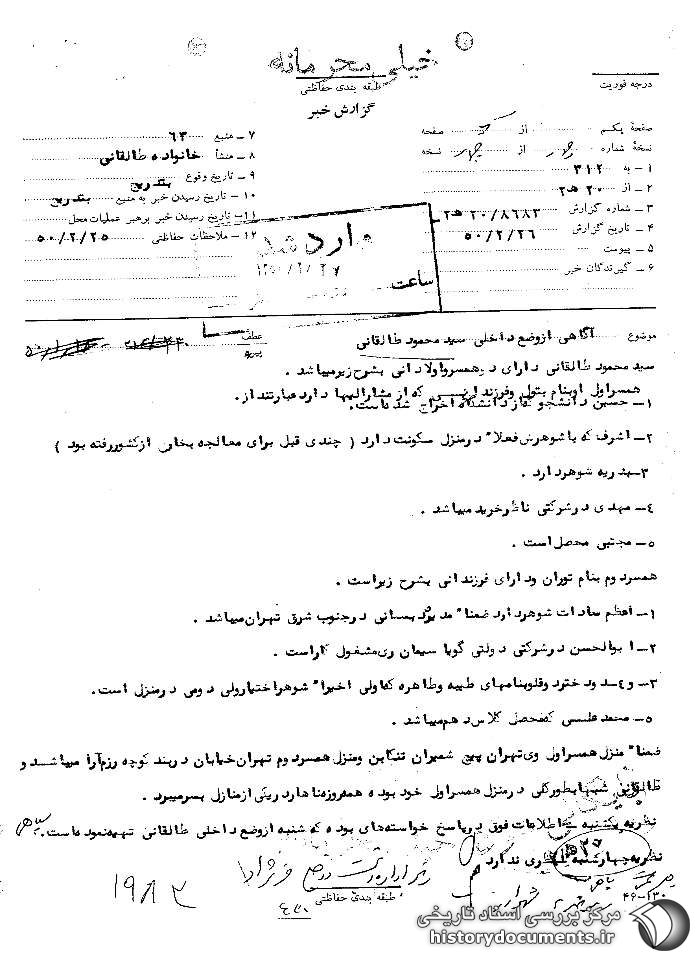 خیلی محرمانه
طبقه بندی حفاظتی
گزارش خبر
درجه فوریت
صفحهٔ یکم از یک صفحه
نسخهٔ شماره چهار از چهار نسخه
۱ – به ۳۱۲
۲ – از ۲۰ هـ ۲
۳ – شماره گزارش ۸۶۸۳ / ۲۰ هـ ۲
۴ – تاریخ گزارش ۵۰/۲/۲۶
۵ – پیوست
۶ – گیرندگان خبر
۷ – منبع ۶۳
۸ – منشأ خانواده طالقانی
۹ – تاریخ وقوع بتدریج
۱۰ – تاریخ رسیدن خبر به منبع بتدریج
۱۱ – تاریخ رسیدن خبر برهبر عملیات محل
۱۲ – ملاحظات حفاظتی ۵۰/۲/۲۵
وارد شد
ساعت
موضوع آگاهی از وضع داخلی سید محمود طالقانی
عطف
پیرو
سید محمود طالقانی دارای دو همسر و اولادانی بشرح زیر میباشد .
همسر اول او بنام بتول و فرزندانی که از مشارالیها دارد عبارتند از .
۱ – حسین دانشجو که از دانشگاه اخراج شده است .
۲ – اشرف که با شوهرش فعلا" در منزل سکونت دارد ( چندی قبل برای معالجه بخارج از کشور رفته بود )
۳ – بدریه شوهر دارد .
۴ – مهدی در شرکتی ناظر خرید میباشد .
۵ – مجتبی محصل است .
همسر دوم بنام توران و دارای فرزندانی بشرح زیر است .
۱ – اعظم سادات شوهر دارد ضمنا" مدیر دبستانی در جنوب شرق تهران میباشد .
۲ – ابوالحسن در شرکتی دولتی گویا سیمان ری مشغول کار است .
۳ – و ۴ – دو دختر دوقلو بنامهای طیبه و طاهره که اولی اخیرا" شوهر اختیار ولی دومی در منزل است .
۵ – محمد عیسی که محصل کلاس دهم میباشد .
ضمنا" منزل همسر اول وی تهران پیچ شمیران تنکابن و منزل همسر دوم تهران خیابان دربند کوچه رزم آرا میباشد و
طالقانی شبها بطور کلی در منزل همسر اول خود بوده همه روزه ناهار در یکی از منازل بسر میبرد .
نظریه یکشنبه – اطلاعات فوق در پاسخ خواسته های بوده که شنبه از وضع داخلی طالقانی تهیه نموده است .
نظریه چهارشنبه نظری ندارد
طبقه بندی حفاظتی
۱۹/۳
۴۶-۱۳۰
مرکز بررسی اسناد تاریخی
historydocuments.ir